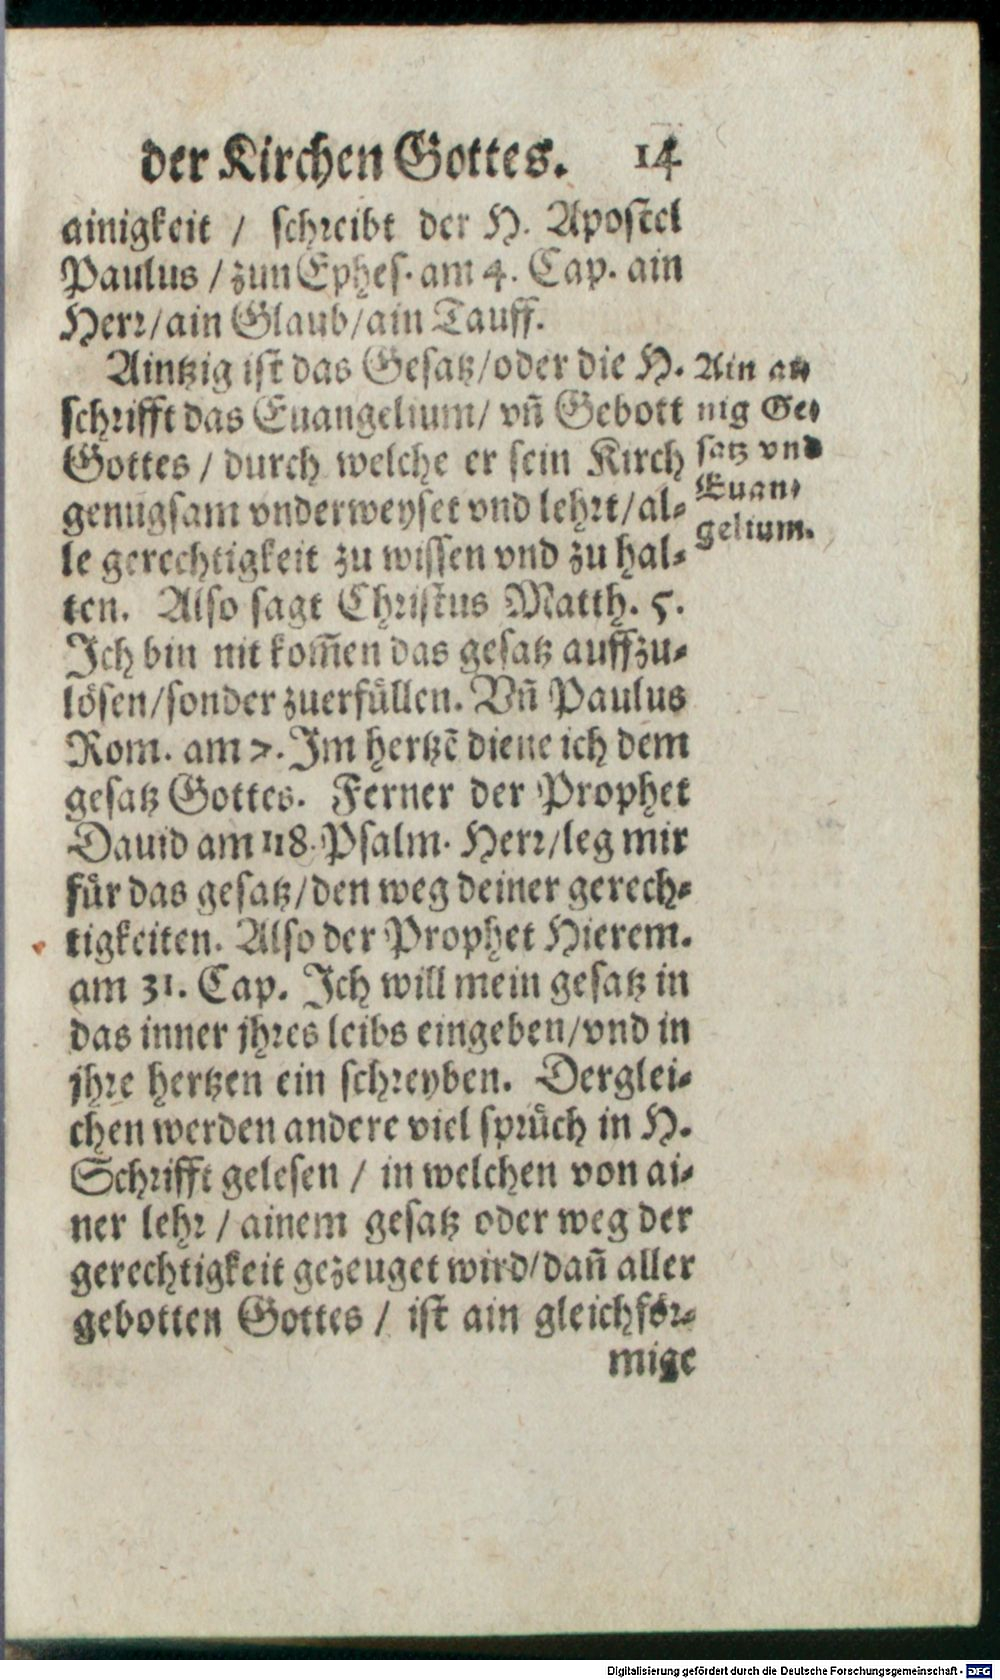 der Kirchen Gottes. 14
ainigkeit / schreibt der H. Apostel
Paulus / zun Ephes. am 4. Cap. ain
Herr/ain Glaub/ain Tauff.
Aintzig ist das Gesatz/oder die H.
schrifft das Euangelium/ vñ Gebott
Gottes / durch welche er sein Kirch
genugsam vnderweyset vnd lehrt/al-
le gerechtigkeit zu wissen vnd zu hal-
ten. Also sagt Christus Matth. 5.
Ich bin nit kom̃en das gesatz auffzu-
lösen/sonder zuerfüllen. Vñ Paulus
Rom. am 7. Im hertzẽ diene ich dem
gesatz Gottes. Ferner der Prophet
Dauid am 118. Psalm. Herr/leg mir
für das gesatz/den weg deiner gerech-
tigkeiten. Also der Prophet Hierem.
am 31. Cap. Ich will mein gesatz in
das inner jhres leibs eingeben/vnd in
jhre hertzen ein schreyben. Derglei-
chen werden andere viel sprüch in H.
Schrifft gelesen / in welchen von ai-
ner lehr / ainem gesatz oder weg der
gerechtigkeit gezeuget wird/dañ aller
gebotten Gottes / ist ain gleichför-
mige
Ain ai-
nig Ge-
satz vnd
Euan-
gelium.
Digitalisierung gefördert durch die Deutsche Forschungsgemeinschaft - DFG